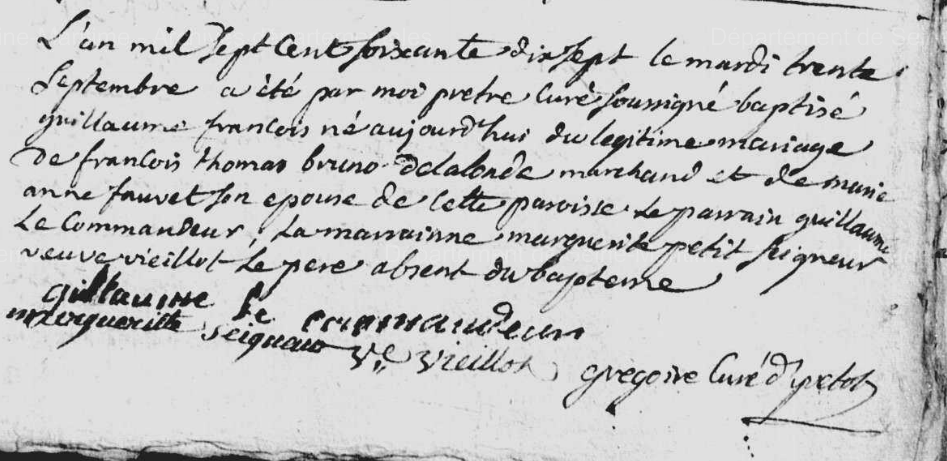 L'an mil sept Cent soixante dix sept le mardi trente
Septembre a été par moi pretre Curé soussigné baptisé
guillaume francois né aujourd'hui du legitime mariage
de francois thomas bruno delalonde marchand et de marie
anne fauvet son epouse de Cette paroisse Le parrain guillaume
Le Commandeur, La marrainne marguerite petit seigneur
veuve vieillot Le pere absent du bapteme
guillaume le commandeur
margueritte seigneur Ve vieillot
gregoire Curé d'yvetot